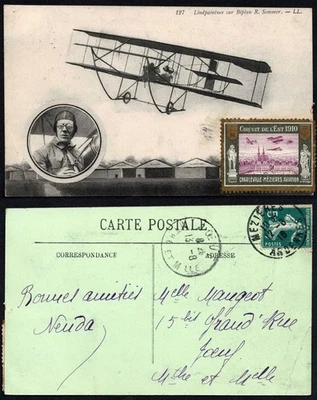 127 Lindpaintner sur Biplan R. Sommer. - LL.
CIRCUIT DE L'EST 1910
CHARLEVILLE-MÉZIÈRES AVIATION
CARTE POSTALE
CORRESPONDANCE
ADRESSE
MEZIERES
POSTES
Bonnes amitiés
Nenda
Mlle Maugeot
15 bis Grand' Rue
Joeuf
Mthe et Mlle